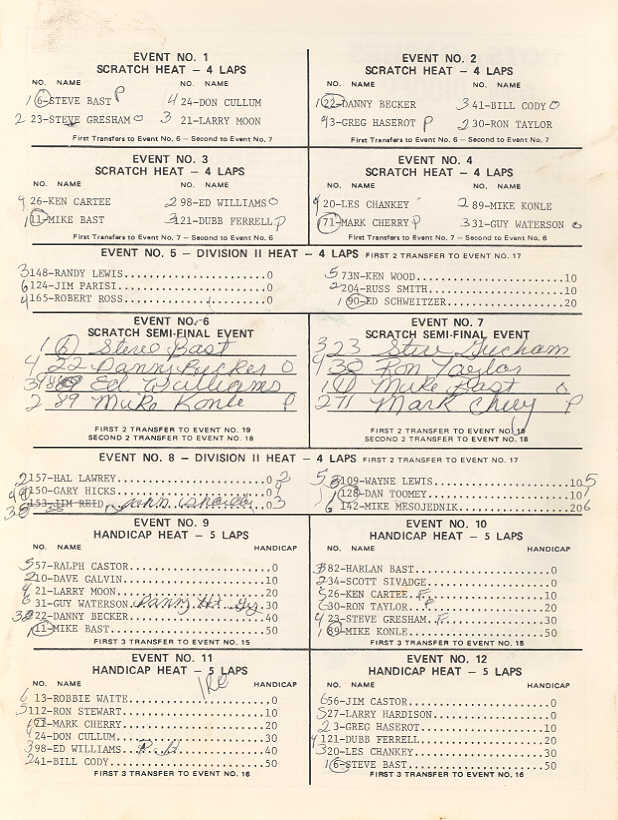 EVENT NO. 1
SCRATCH HEAT – 4 LAPS
NO. NAME NO. NAME
1 6-STEVE BAST P 4 24-DON CULLUM
2 23-STEVE GRESHAM O 3 21-LARRY MOON
First Transfers to Event No. 6 – Second to Event No. 7
EVENT NO. 2
SCRATCH HEAT – 4 LAPS
NO. NAME NO. NAME
1 22-DANNY BECKER 3 41-BILL CODY O
4 3-GREG HASEROT P 2 30-RON TAYLOR
First Transfers to Event No. 6 – Second to Event No. 7
EVENT NO. 3
SCRATCH HEAT – 4 LAPS
NO. NAME NO. NAME
4 26-KEN CARTEE 2 98-ED WILLIAMS O
1 11-MIKE BAST 3 121-DUBB FERRELL P
First Transfers to Event No. 7 – Second to Event No. 6
EVENT NO. 4
SCRATCH HEAT – 4 LAPS
NO. NAME NO. NAME
4 20-LES CHANKEY 2 89-MIKE KONLE
1 71-MARK CHERRY P 3 31-GUY WATERSON O
First Transfers to Event No. 7 – Second to Event No. 6
EVENT NO. 5 – DIVISION II HEAT – 4 LAPS FIRST 2 TRANSFER TO EVENT NO. 17
3 148-RANDY LEWIS 0 5 73N-KEN WOOD 10
6 124-JIM PARISI 0 2 204-RUSS SMITH 10
4 165-ROBERT ROSS 0 1 90-ED SCHWEITZER 20
EVENT NO. 6
SCRATCH SEMI-FINAL EVENT
1 6 Steve Bast
4 22 Danny Becker O
3 98 Ed Williams
2 89 Mike Konle P
FIRST 2 TRANSFER TO EVENT NO. 19
SECOND 2 TRANSFER TO EVENT NO. 18
EVENT NO. 7
SCRATCH SEMI-FINAL EVENT
3 23 Steve Gresham
4 30 Ron Taylor
1 11 Mike Bast O
2 71 Mark Cherry P
FIRST 2 TRANSFER TO EVENT NO. 19
SECOND 2 TRANSFER TO EVENT NO. 18
EVENT NO. 8 – DIVISION II HEAT – 4 LAPS FIRST 2 TRANSFER TO EVENT NO. 17
2 157-HAL LAWREY 0 2 5 109-WAYNE LEWIS 10 5
4 150-GARY HICKS 0 4 1 128-DAN TOOMEY 10
153-JIM REID John 0 3 6 142-MIKE MESOJEDNIK 20 6
EVENT NO. 9
HANDICAP HEAT – 5 LAPS
NO. NAME HANDICAP
5 57-RALPH CASTOR 0
2 10-DAVE GALVIN 10
4 21-LARRY MOON 20
6 31-GUY WATERSON 30
3 22-DANNY BECKER 40
1 11-MIKE BAST 50
FIRST 3 TRANSFER TO EVENT NO. 15
EVENT NO. 10
HANDICAP HEAT – 5 LAPS
NO. NAME HANDICAP
3 82-HARLAN BAST 0
2 34-SCOTT SIVADGE 0
5 26-KEN CARTEE F. 10
6 30-RON TAYLOR 20
4 23-STEVE GRESHAM F. 30
1 89-MIKE KONLE 50
FIRST 3 TRANSFER TO EVENT NO. 15
EVENT NO. 11
HANDICAP HEAT – 5 LAPS
NO. NAME HANDICAP
6 13-ROBBIE WAITE 0
5 112-RON STEWART 10
1 71-MARK CHERRY 20
4 24-DON CULLUM 30
3 98-ED WILLIAMS 40
2 41-BILL CODY 50
FIRST 3 TRANSFER TO EVENT NO. 16
EVENT NO. 12
HANDICAP HEAT – 5 LAPS
NO. NAME HANDICAP
6 56-JIM CASTOR 0
5 27-LARRY HARDISON 0
2 3-GREG HASEROT 10
4 121-DUBB FERRELL 20
3 20-LES CHANKEY 30
1 6-STEVE BAST 50
FIRST 3 TRANSFER TO EVENT NO. 16